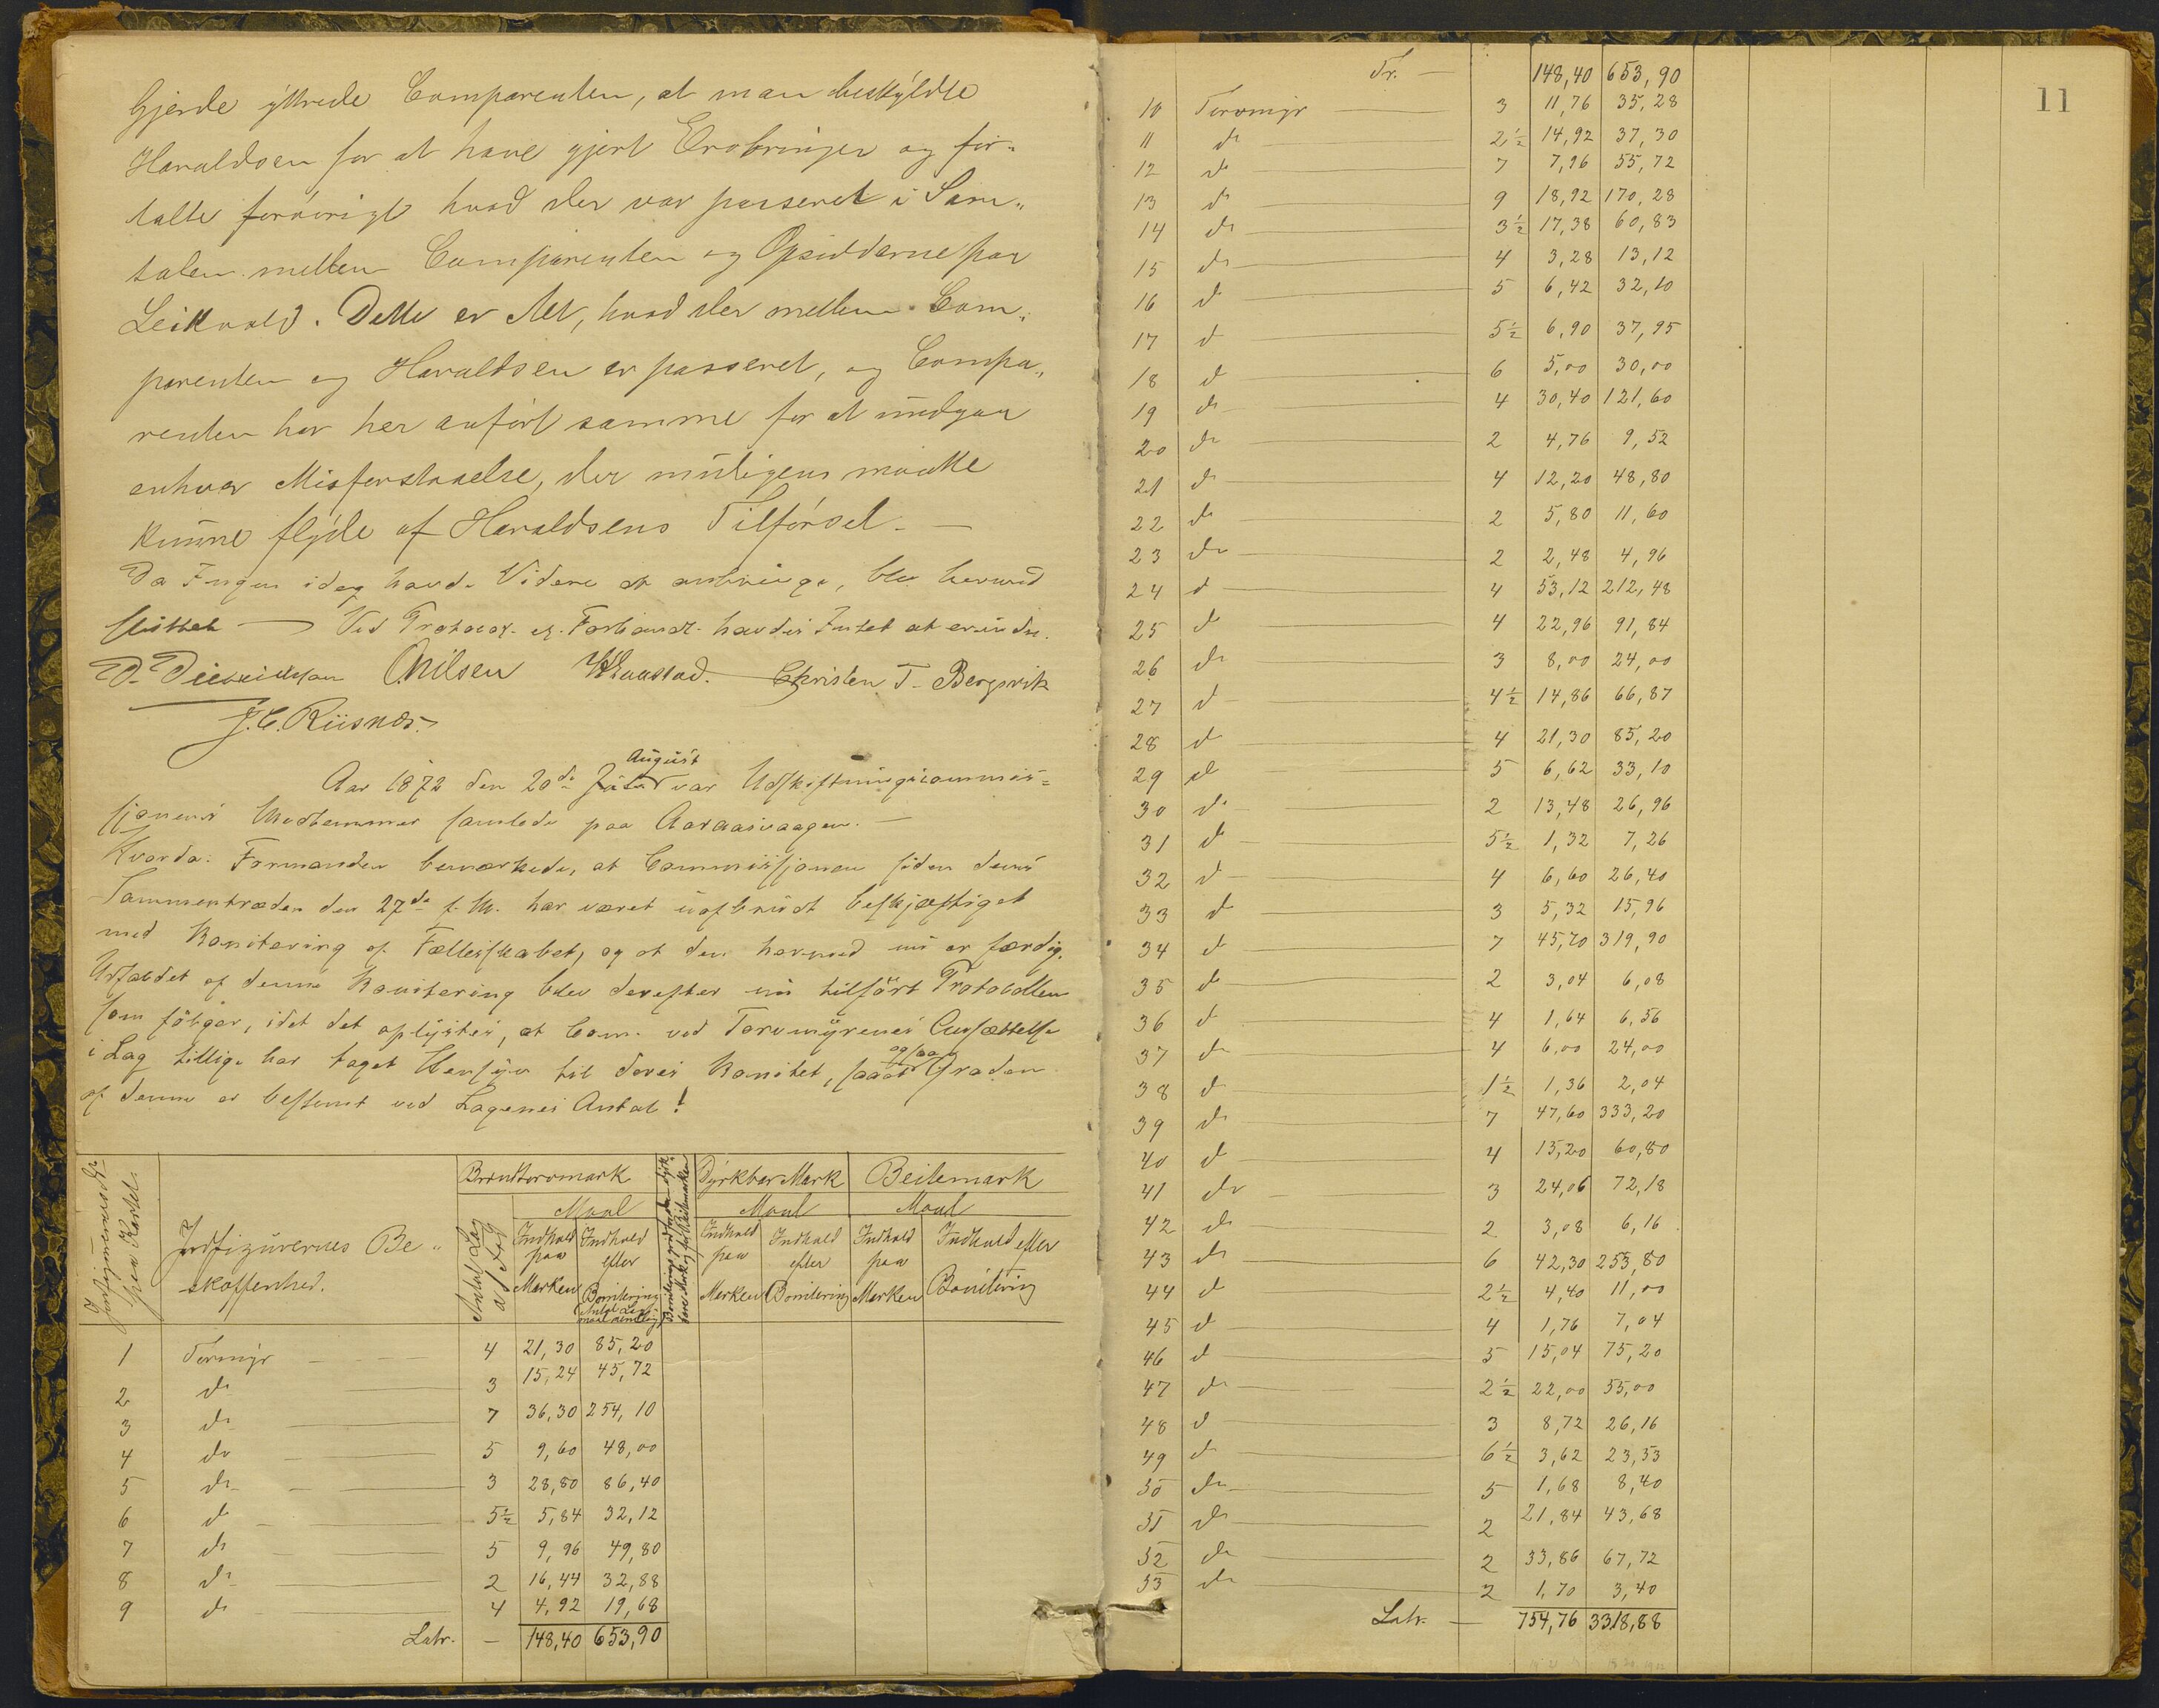 Gjerde yttrede Comparenten, at man beskyldte
Haraldsen for at have gjort Erobringer og for„
talte forøvrigt hvad der var passeret i Sam„
talen mellem Comparenten og Opsidderne paa
Leikvold. Dette er Alt, hvad der mellem Com„
parenten og Haraldsen er passeret, og Compa„
renten har her anført samme for at undgaa
enhver Misforstaaelse, der muligens maatte
kunne flyde af Haraldsens Tilførsel. —
Da Ingen idag havde Videre at anbringe, blev hermed
sluttet — Ved Protocol. og Forhandl. havdes Intet at erindre.
D. Didrichsen O. Nilsen Christen T. Bergsvik
J. C. Riisnæs.
August
Aar 1872 den 20de Juli var Udskiftningscommis=
sjonens Medlemmer samlede paa Aaraasvaagen. —
Hvorda: Formanden bemærkede, at Commissjonen siden dens
Sammentræden den 27de f. M. har været uafbrudt beskjæftiget
med Bonitering af Fællesskabet, og at den hermed nu er færdig.
Udfaldet af denne Bonitering blev derefter nu tilført Protocollen
som følger, idet det oplystes, at Com. ved Torvmyrenes Ansættelse
i Lag tillige har taget Hensyn til deres Bonitet, saa at ogsaa Graden
af denne er bestemt ved Lagenes Antal!
Jordfigurernes No paa Kartet
Jordfigurernes Be„
skaffenhed.
Brændtorvmark
Antal Lag af Torv
Maal
Indhold paa Marken
Indhold efter Bonitering
Dyrkbar Mark
Maal
Indhold paa Marken
Indhold efter Bonitering
Beitemark
Maal
Indhold paa Marken
Indhold efter Bonitering
1 Torvmyr 4 21,30 85,20
2 do 3 15,24 45,72
3 do 7 36,30 254,10
4 do 5 9,60 48,00
5 do 3 28,80 86,40
6 do 5½ 5,84 32,12
7 do 5 9,96 49,80
8 do 2 16,44 32,88
9 do 4 4,92 19,68
Latr. — 148,40 653,90
11
Tr. — 148,40 653,90
10 Torvmyr 3 11,76 35,28
11 do 2½ 14,92 37,30
12 do 7 7,96 55,72
13 do 9 18,92 170,28
14 do 3½ 17,38 60,83
15 do 4 3,28 13,12
16 do 5 6,42 32,10
17 do 5½ 6,90 37,95
18 do 6 5,00 30,00
19 do 4 30,40 121,60
20 do 2 4,76 9,52
21 do 4 12,20 48,80
22 do 2 5,80 11,60
23 do 2 2,48 4,96
24 do 4 53,12 212,48
25 do 4 22,96 91,84
26 do 3 8,00 24,00
27 do 4½ 14,86 66,87
28 do 4 21,30 85,20
29 do 5 6,62 33,10
30 do 2 13,48 26,96
31 do 5½ 1,32 7,26
32 do 4 6,60 26,40
33 do 3 5,32 15,96
34 do 7 45,70 319,90
35 do 2 3,04 6,08
36 do 4 1,64 6,56
37 do 4 6,00 24,00
38 do 1½ 1,36 2,04
39 do 7 47,60 333,20
40 do 4 15,20 60,80
41 do 3 24,06 72,18
42 do 2 3,08 6,16
43 do 6 42,30 253,80
44 do 2½ 4,40 11,00
45 do 4 1,76 7,04
46 do 5 15,04 75,20
47 do 2½ 22,00 55,00
48 do 3 8,72 26,16
49 do 6½ 3,62 23,53
50 do 5 1,68 8,40
51 do 2 21,84 43,68
52 do 2 33,86 67,72
53 do 2 1,70 3,40
Latr. — 754,76 3318,88